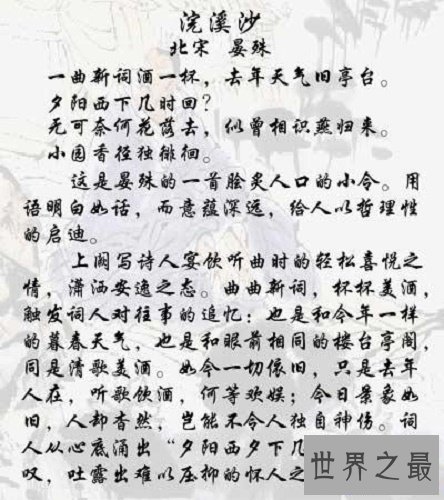 浣溪沙
北宋 晏殊
一曲新词酒一杯，去年天气旧亭台。
夕阳西下几时回？
无可奈何花落去，似曾相识燕归来。
小园香径独徘徊。
这是晏殊的一首脍炙人口的小令。用
语明白如话，而意蕴深远，给人以哲理性
的启迪。
上阕写诗人宴饮听曲时的轻松喜悦之
情，潇洒安逸之态。曲曲新词，杯杯美酒，
触发词人对往事的追忆：也是和今年一样
的暮春天气，也是和眼前相同的楼台亭阁，
同是清歌美酒。如今一切依旧，只是去年
人在，听歌饮酒，何等欢娱；今日景象如
旧，人却杳然，岂能不令人独自神伤。词
人从心底涌出“夕阳西夕下几
叹，吐露出难以压抑的怀人之
世界之最